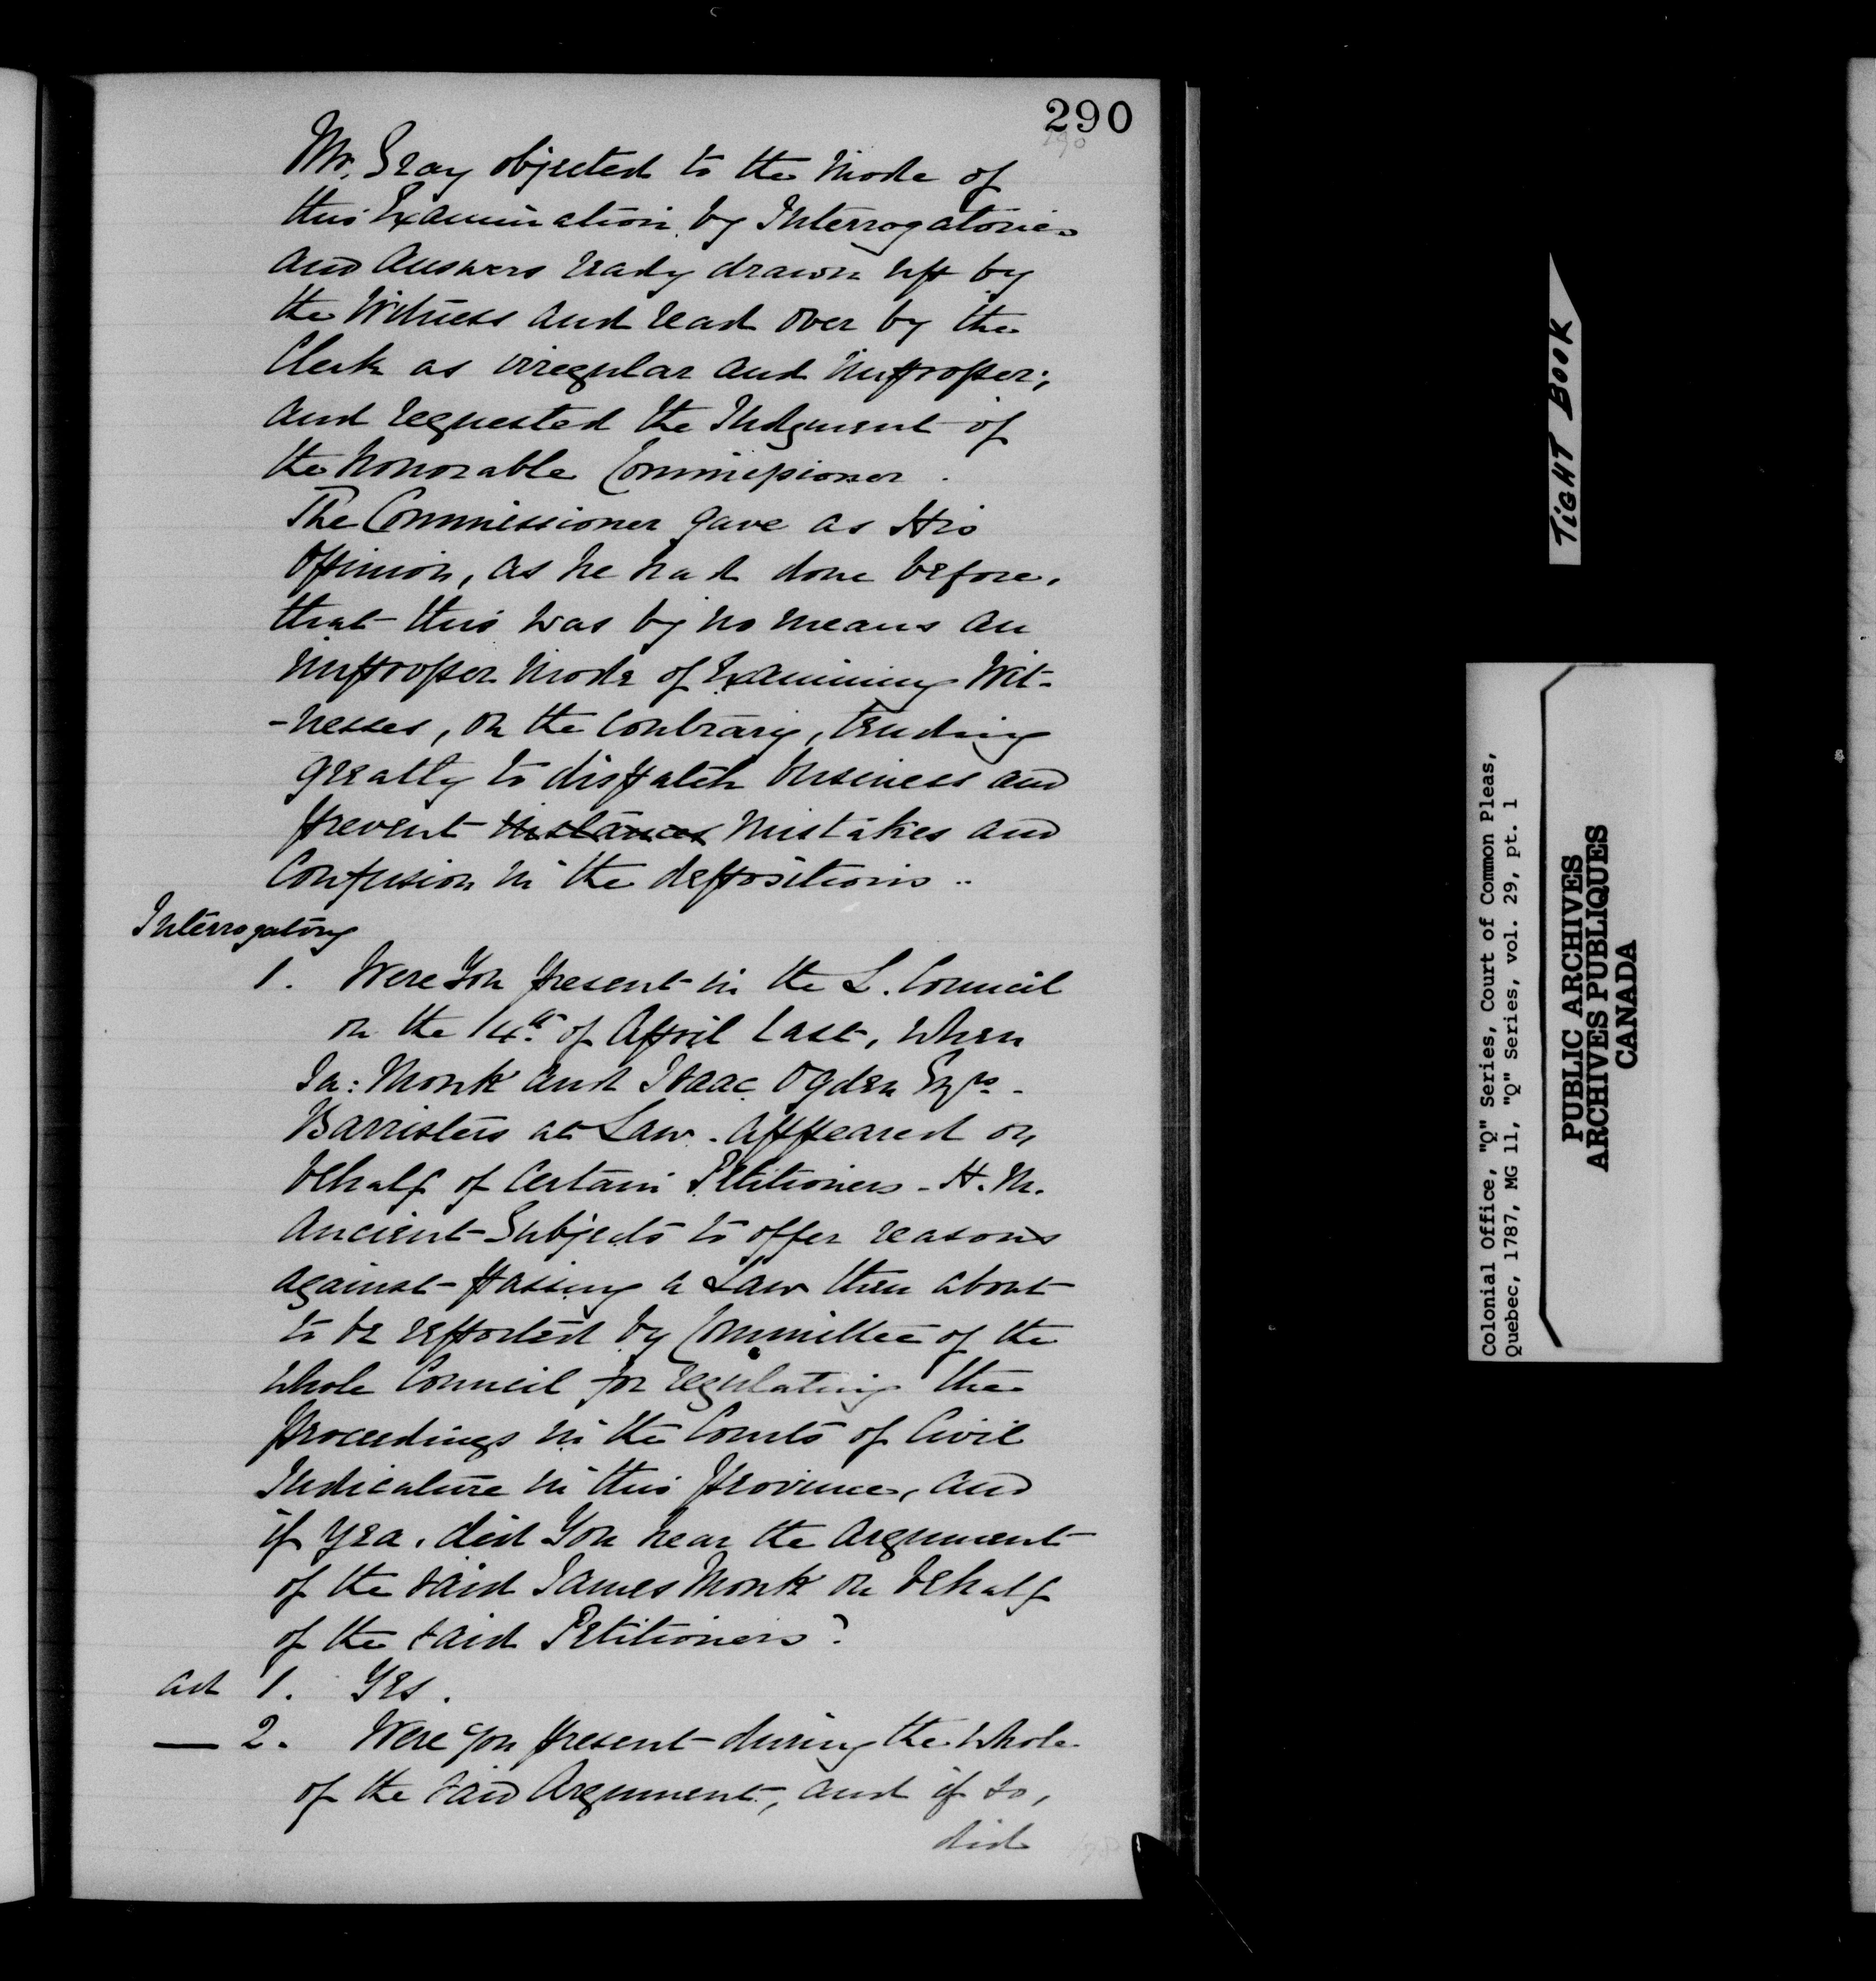 290
Mr. Gray objected to the Mode of
this Examination by Interrogatories
and Answers ready drawn up by
the Witness and read over by the
Clerk as irregular and improper;
and requested the Judgment of
the honorable Commissioner.
The Commissioner gave as His
Opinion, as he had done before,
that this was by no means an
improper mode of Examining Wit-
-nesses, on the contrary, tending
greatly to dispatch business and
prevent instances mistakes and
Confusion in the depositions..
Interrogatory
1. Were You present in the L. Council
on the 14th. of April last, when
Ja: Monk and Isaac Ogden Esqrs.
Barristers at Law. appeared on
behalf of certain Petitioners - H. M.
Ancient Subjects to offer reasons
against passing a Law then about
to be reported by Committee of the
whole Council for regulating the
proceedings in the Courts of Civil
Judicature in this province, and
if yea, did You hear the argument
of the said James Monk on behalf
of the said Petitioners?
1. Yes.
— 2. Were you present during the whole
of the said Argument, and if so,
did
TIGHT BOOK
Colonial Office, "Q" Series, Court of Common Pleas,
Quebec, 1787, MG 11, "Q" Series, vol. 29, pt. 1
PUBLIC ARCHIVES
ARCHIVES PUBLIQUES
CANADA